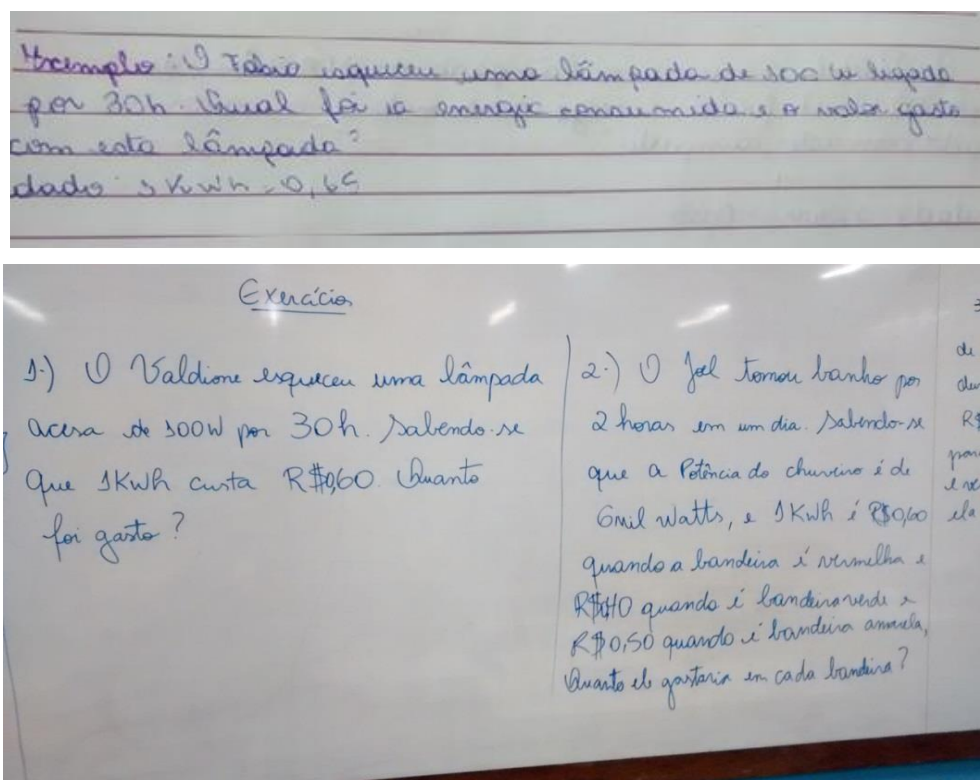 Exemplo: O Fabio esqueceu uma lâmpada de 100 w ligada
por 30h. Qual foi a energia consumida e o valor gasto
com esta lâmpada?
dado: 1 Kwh = 0,65
Exercícios
1-) O Valdione esqueceu uma lâmpada
acesa de 100W por 30h. Sabendo-se
que 1KWh custa R$0,60. Quanto
foi gasto?
2-) O Joel tomou banho por
2 horas em um dia. Sabendo-se
que a Potência do chuveiro é de
6mil Watts, e 1KWh é R$0,60
quando a bandeira é vermelha e
R$0,40 quando é bandeira verde e
R$0,50 quando é bandeira amarela,
Quanto ele gastaria em cada bandeira?
3
de
R$
ela